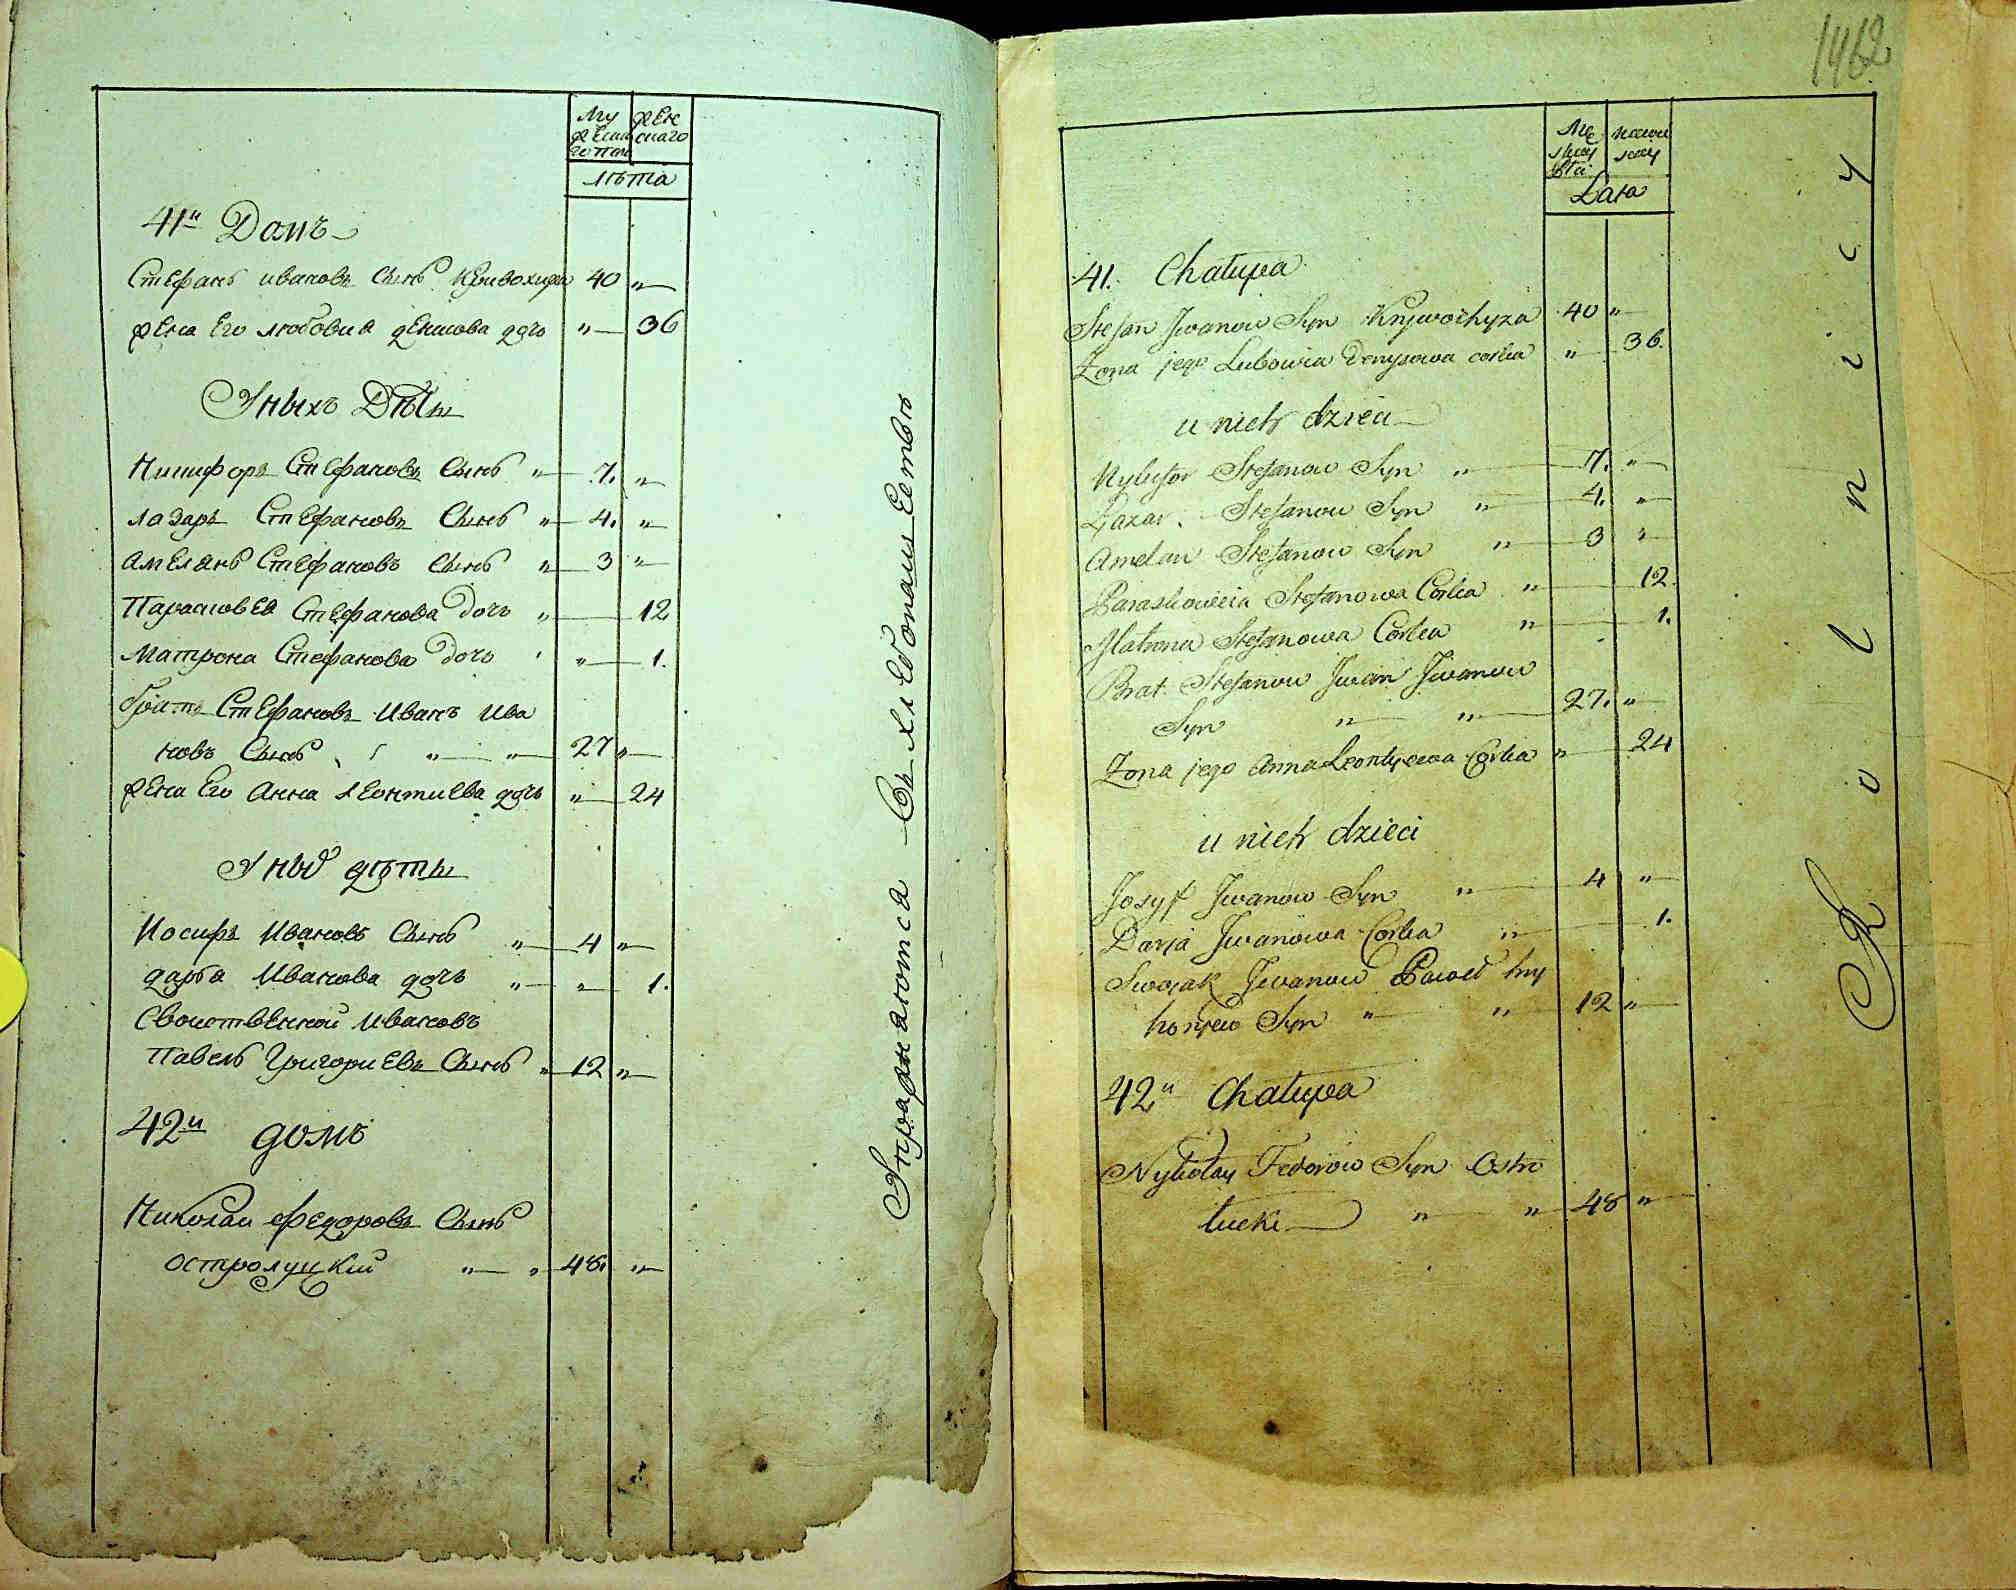 Му жен
жеска скаго
го пола
лѣта
41й Домъ
Стефанъ ивановъ Сынъ Кривохижа 40 "
жена Его любовиа денисова дочь " 36
У ныхъ Дѣти
Никифоръ Стефановъ Сынъ " 7. "
лазаръ Стефановъ Сынъ " 4. "
амелянъ Стефановъ Сынъ " 3 "
Парасковеа Стефанова дочъ " 12
матрона Стефанова дочь " 1.
братъ Стефановъ Иванъ Ива
новъ Сынъ " " 27 "
жена Его Анна леонтиева дочь " 24
У ныхъ дѣти
Иосифъ Ивановъ Сынъ " 4 "
даръа Иванова дочь " " 1.
Свойственной Ивановъ
Павелъ Григориевъ Сынъ " 12 "
42й домъ
Николаи Федоровъ Сынъ
остролуцкий " " 48. "
Упражняются въ хлебопашестве
1462
Męs
Lata
41. Chałupa
Stefan Jwanow Syn Krywochyza 40 "
Zona jego Lubowia Denysowa corka " 36.
u nich dzieci
Nykyfor Stefanow Syn " 7. "
Łazar Stefanow Syn " 4. "
Amelan Stefanow Syn " 3 "
Paraskowieia Stefanowa Corka " 12.
Matrona Stefanowa Corka " 1.
Brat Stefanow Jwan Jwanow
Syn " " 27. "
Zona jego Anna Leontyewa Corka " 24
u nich dzieci
Josyf Jwanow Syn " 4 "
Darja Jwanowa Corka " 1.
Swojak Jwanow Paweł hry
horyew Syn " " 12 "
42й Chałupa
Nykołay Fedorow Syn Ostro
łucki " " 48 "
Rolnicy